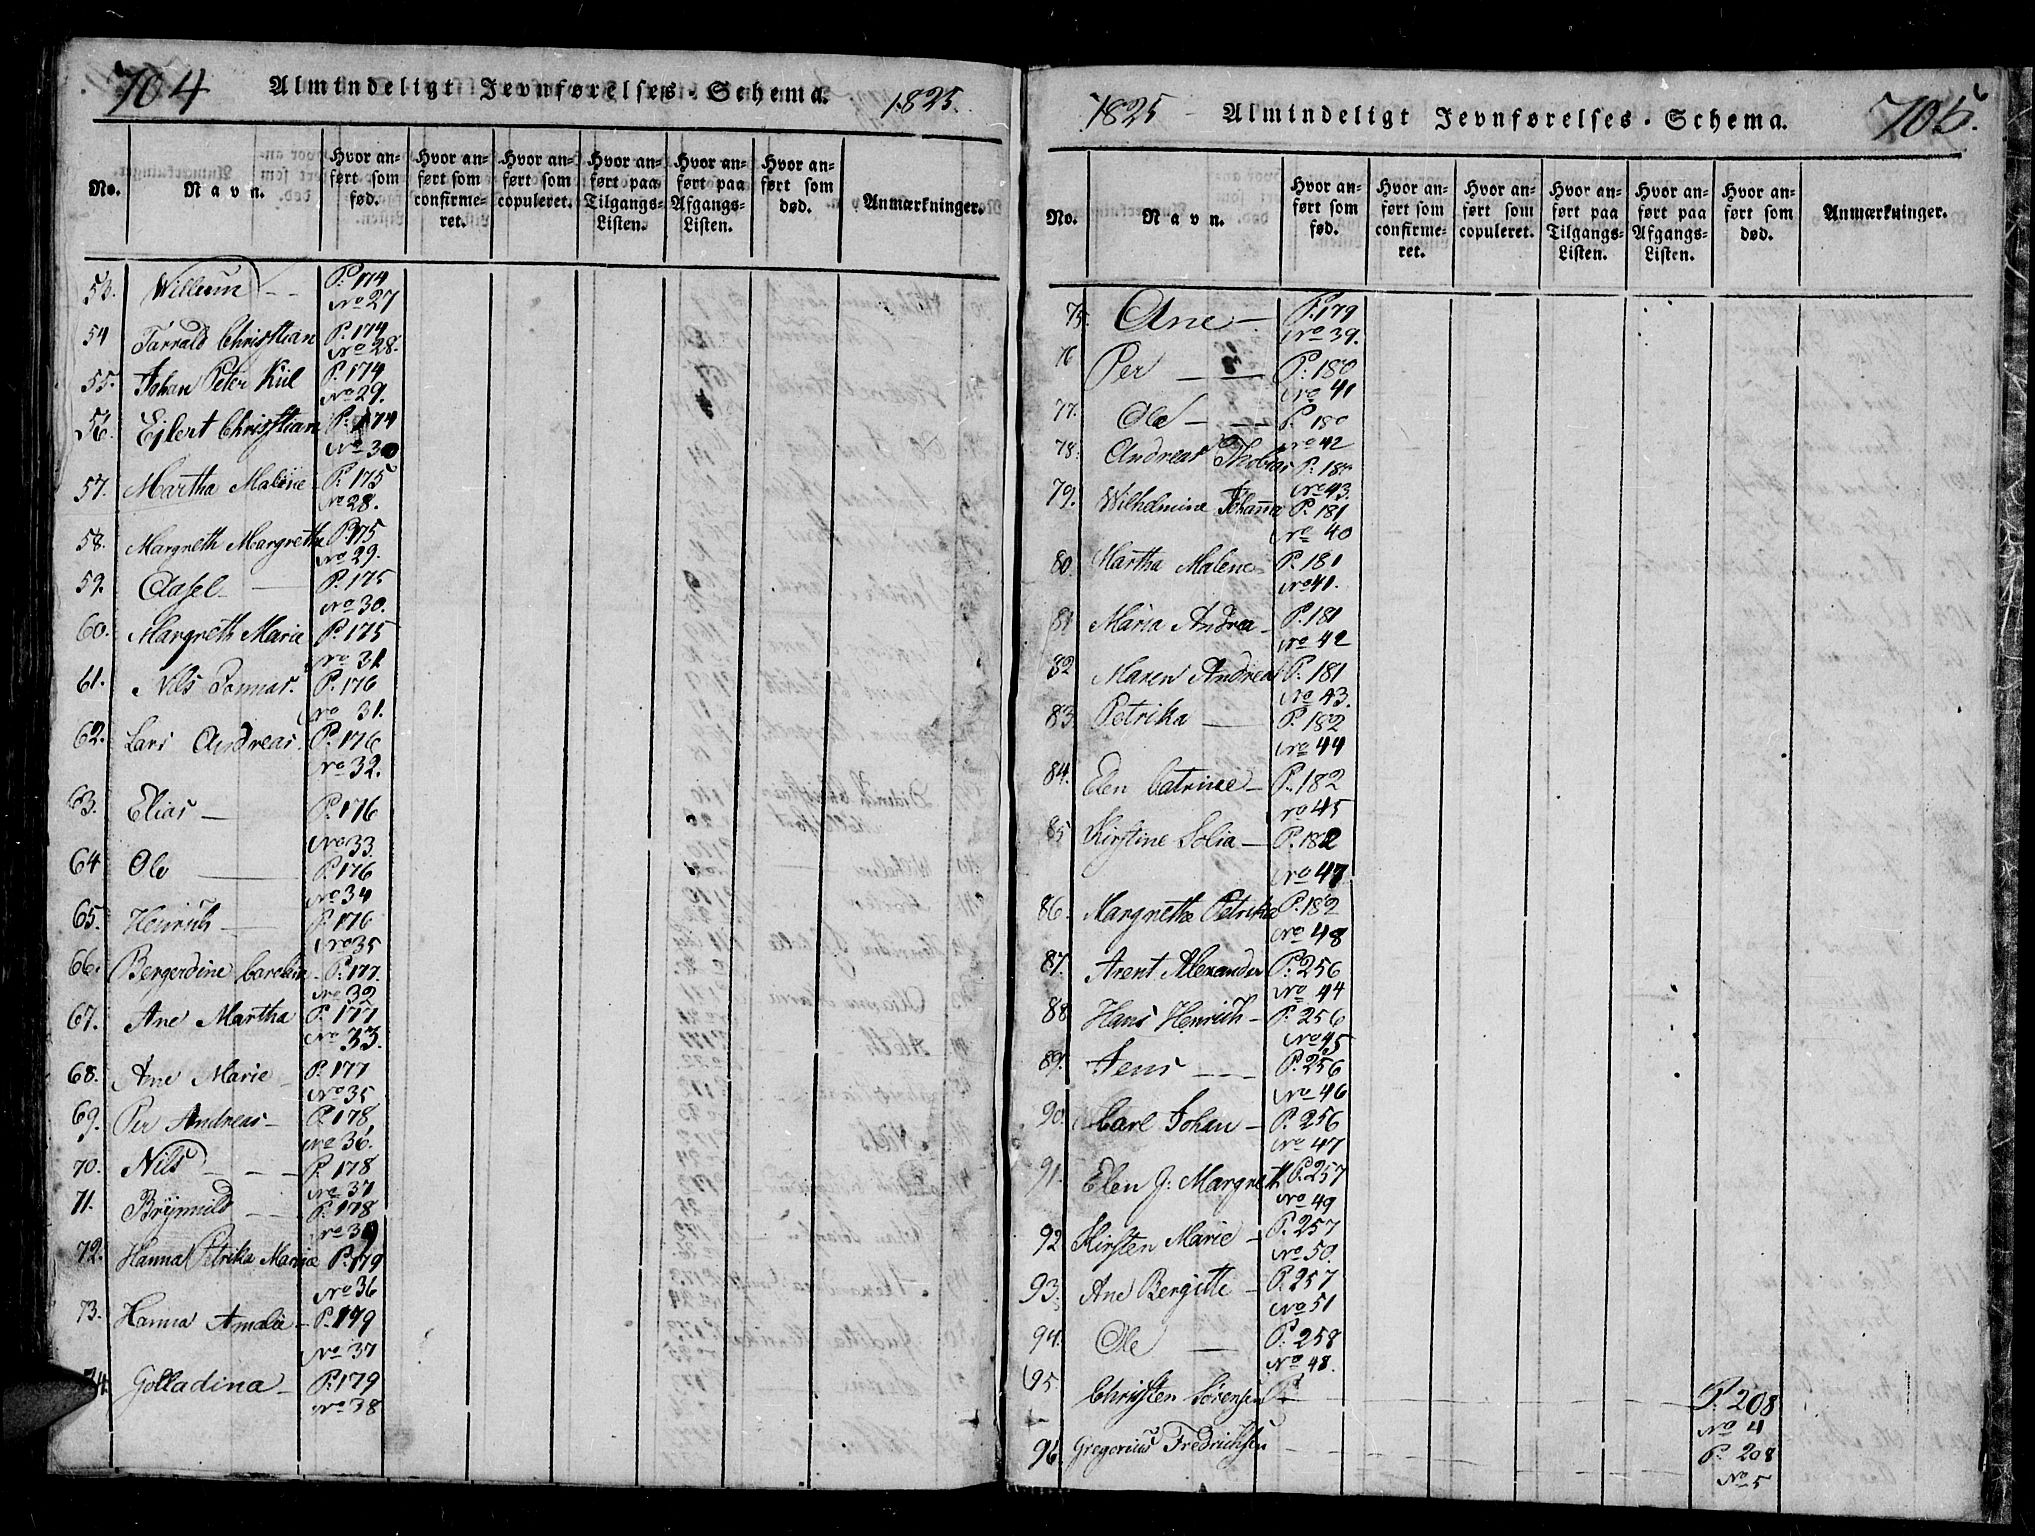 704 Almindeligt Jevnførelses-Schema. 1825.
No. Navn. Hvor anført som fød. Hvor anført som confirmeret. Hvor anført som copuleret. Hvor anført paa Tilgangs-Listen. Hvor anført paa Afgangs-Listen. Hvor anført som død. Anmærkninger.
53. Willum P. 174
No 27
54 Tarrald Christian P. 174
No 28.
55. Johan Peter Kiil P. 174
No 29.
56. Ejlert Christian P. 174
No 30
57. Martha Malene P. 175
No 28.
58. Margreth Margrethe P. 175
No 29.
59. Aasel P. 175
No 30.
60. Margreth Maria P. 175
No 31
61. Nils Tonnas. P. 176
No 31.
62. Lars Andreas. P. 176
No 32.
63. Elias P. 176
No 33.
64 Ole P. 176
No 34
65. Henrich P. 176
No 35
66. Bergerdine Carolin P. 177.
No 32
67. Ane Martha P. 177
No 33.
68. Ane Marie P. 177
No 35
69. Per Andreas P. 178,
No 36.
70. Nils P. 178
No 37
71. Brÿnnild P. 178
No 39
72. Hanna Petrika Marie P. 179
No 36
73. Hanna Amalie P. 179
No 37
74. Golladina P. 179
No 38
1825 Almindeligt Jevnførelses-Schema. 705.
No. Navn. Hvor anført som fød. Hvor anført som confirmeret. Hvor anført som copuleret. Hvor anført paa Tilgangs-Listen. Hvor anført paa Afgangs-Listen. Hvor anført som død. Anmærkninger.
75. Ane P. 179
No 39.
76 Per P. 180
No 41
77. Ole P. 180
No 42
78. Andreas Thobias P. 180
No 43.
79. Wilhelmine Johanna P. 181
No 40
80. Martha Malene P. 181
No 41.
81 Maria Andrea P. 181
No 42
82 Maren Andrea P. 181
No 43.
83 Petrika P. 182
No 44
84. Elen Catrine P. 182
No 45
85 Kirstine Solia P. 182
No 47
86. Margrethe Petrika P. 182
No 48
87. Arent Alexander P. 256
No 44
88 Hans Henrich P. 256
No 45
89. Jens P. 256
No 46
90. Carl Johan P. 256
No 47
91. Elen J. Margreth P. 257
No 49
92 Kirsten Marie P. 257
No 50.
93. Ane Bergitte P. 257
No 51
94. Ole P. 258
No 48.
95 Christen Sørensen P. P. 208
No 4
96. Gregorius Fredrichsen P. 208
No 5